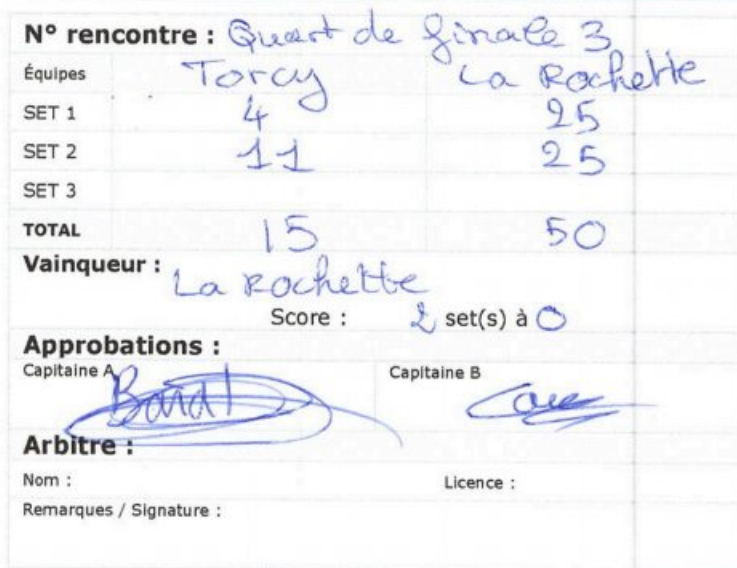 N° rencontre : Quart de finale 3
Équipes Torcy La Rochette
SET 1 4 25
SET 2 11 25
SET 3
TOTAL 15 50
Vainqueur : La Rochette
Score : 2 set(s) à 0
Approbations :
Capitaine A Capitaine B
Arbitre :
Nom : Licence :
Remarques / Signature :